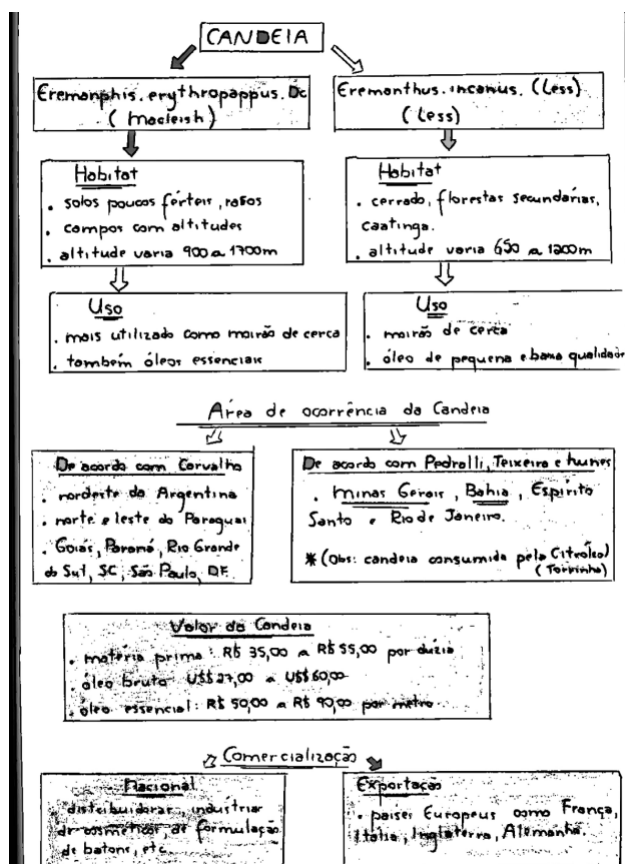 CANDEIA
Eremanphis.erythropappus.Dc
(macleish)
Eremanthus.incanus.(Less)
(Less)
Habitat
. solos poucos férteis, rasos
. campos com altitudes
. altitude varia 900 a 1700m
Habitat
. cerrado, florestas secundárias,
caatinga.
. altitude varia 650 a 1200m
Uso
. mais utilizado como moirão de cerca
. também óleos essenciais
Uso
. moirão de cerca
. óleo de pequena e baixa qualidade
Área de ocorrência da Candeia
De acordo com Carvalho
. nordeste da Argentina
. norte e leste do Paraguai
. Goiás, Paraná, Rio Grande
do Sul, SC, São Paulo, DF.
De acordo com Pedrolli, Teixeira e nunes
. Minas Gerais, Bahia, Espírito
Santo e Rio de Janeiro.
*(Obs: candeia consumida pela Citróleo)
(Torrinha)
Valor da Candeia
. matéria prima: R$ 35,00 a R$ 55,00 por duzia
. óleo bruto U$$ 27,00 a U$$ 60,00
. óleo essencial: R$ 50,00 a R$ 90,00 por metro
Comercialização
Nacional
. distribuidoras, industrias
de cosméticos, de formulação
de batons, etc.
Exportação
. paises Europeus como França,
Itália, Inglaterra, Alemanha.